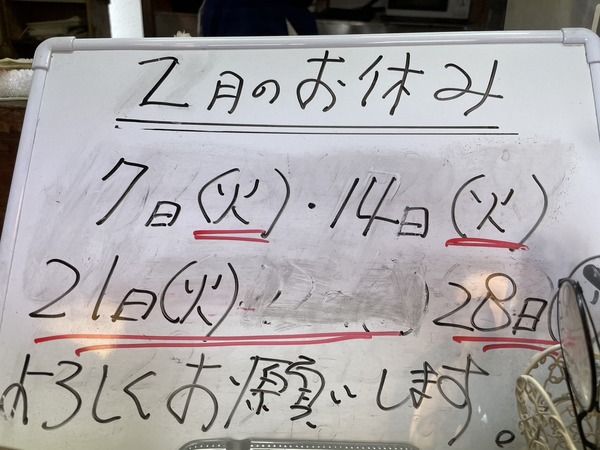 2月のお休み
7日(火)・14日(火)
21日(火)・ 28日
よろしくお願いします。